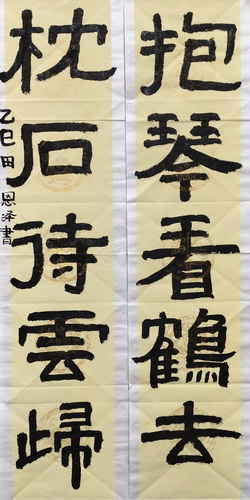 抱琴看鶴去
枕石待雲歸
乙巳田恩泽書